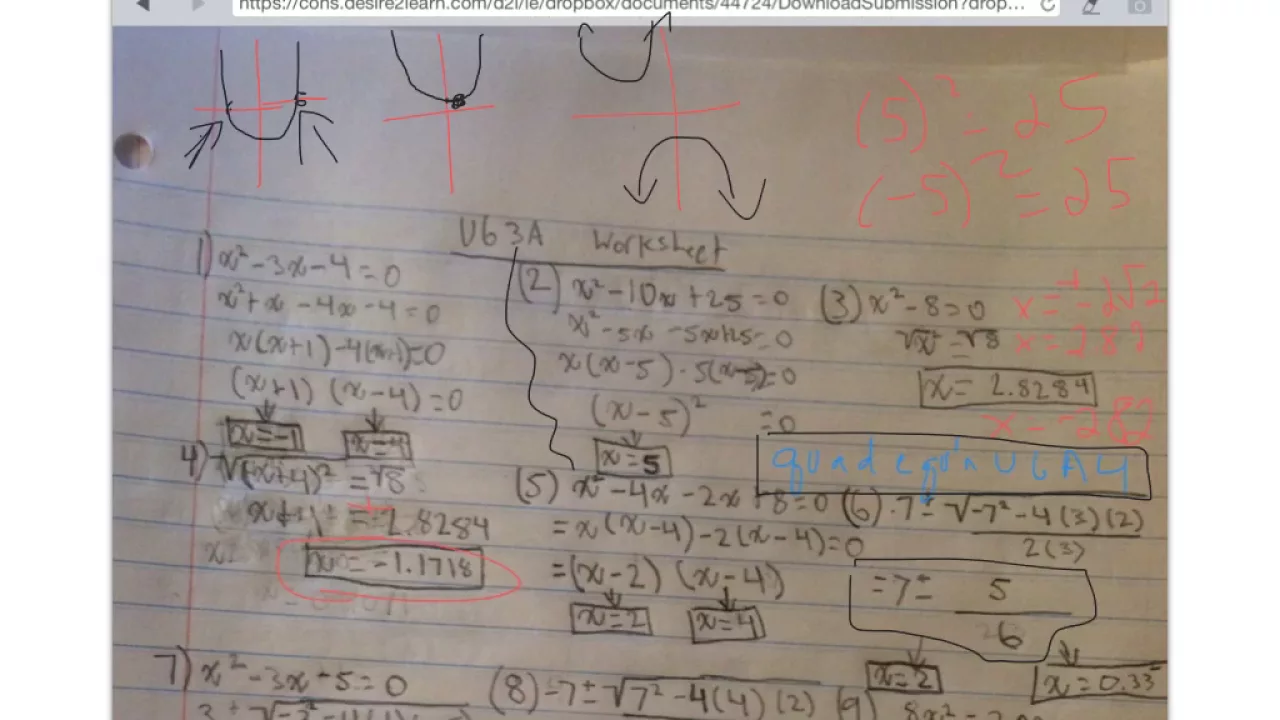 https://cons.desire2learn.com/d2l/le/dropbox/documents/44724/DownloadSubmission?drop...
(5)² = 25
(-5)² = 25
U63A Worksheet
1) x² - 3x - 4 = 0
x² + x - 4x - 4 = 0
x(x+1) - 4(x+1) = 0
(x+1) (x-4) = 0
x = -1 x = 4
(2) x² - 10x + 25 = 0
x² - 5x - 5x + 25 = 0
x(x-5) - 5(x-5) = 0
(x-5)² = 0
x = 5
(3) x² - 8 = 0
√x² = √8
x = 2.8284
x = ± 2√2
x = 2.82
x = -2.82
quad eq'n U6A4
4) √(x+4)² = √8
x+4 = ± 2.8284
x = -1.1718
(5) x² - 4x - 2x + 8 = 0
= x(x-4) - 2(x-4) = 0
= (x-2) (x-4)
x = 2 x = 4
(6) 7 ± √-7² - 4(3)(2)
2(3)
= 7 ± 5
6
x = 2 x = 0.33
7) x² - 3x + 5 = 0
(8) -7 ± √7² - 4(4)(2)
(9) 8x²